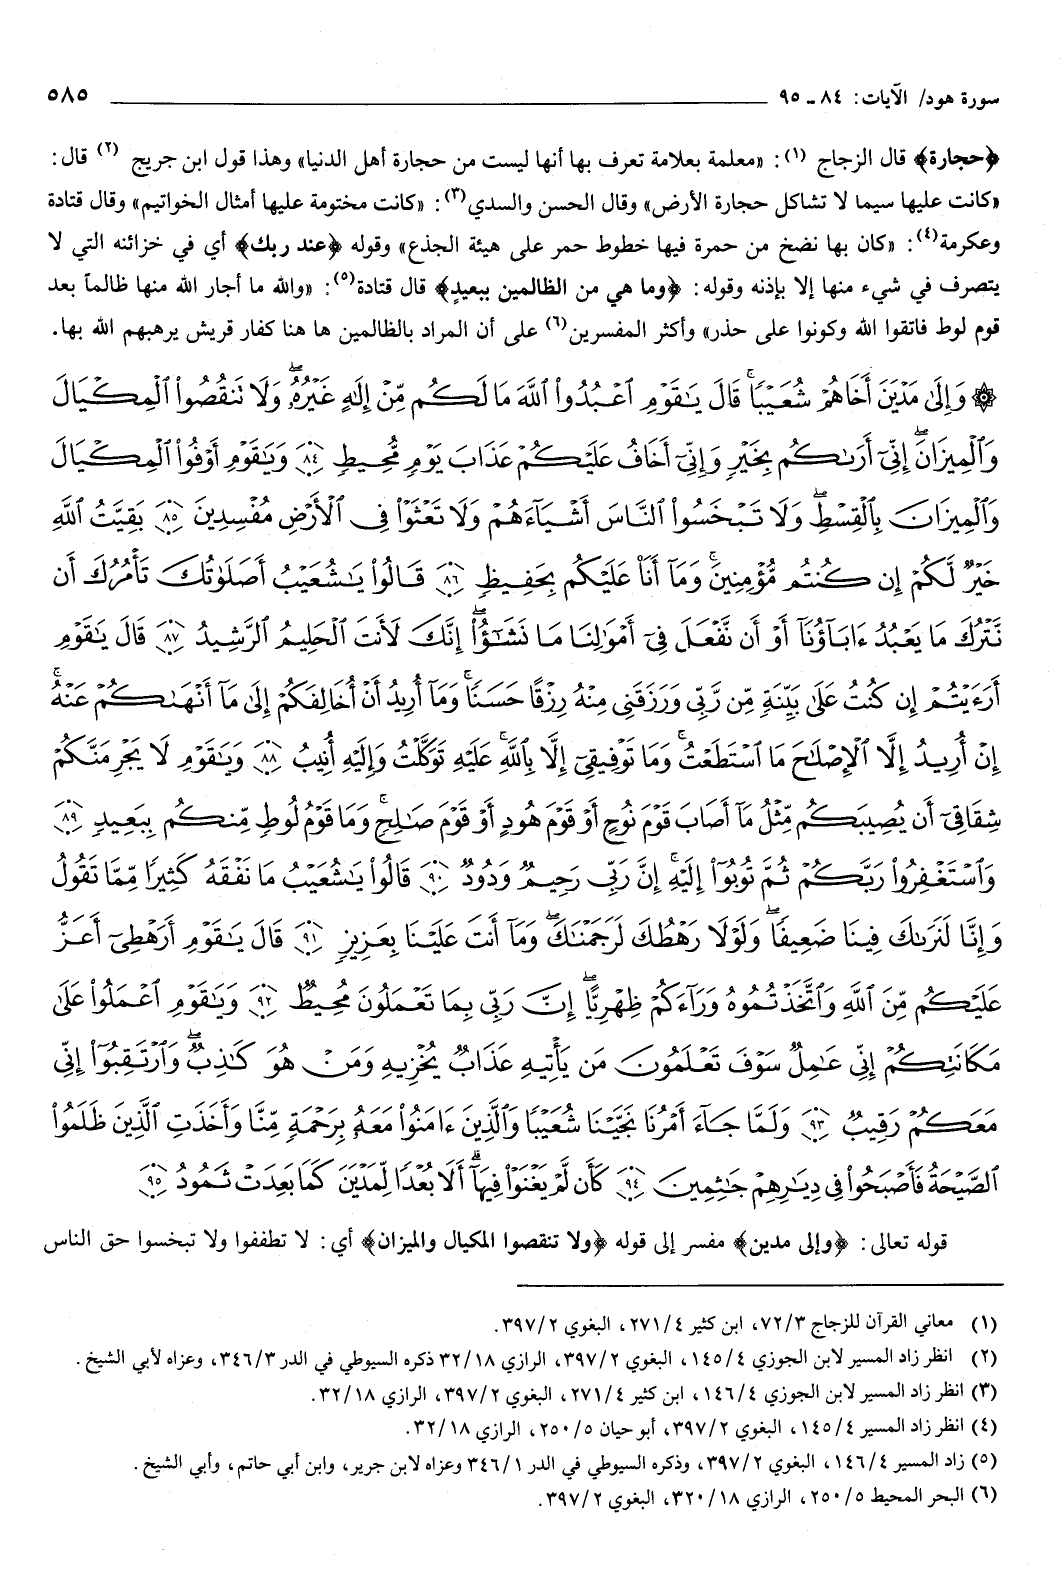 سورة هود/ الآيات: ٨٤ ـ ٩٥ ٥٨٥
﴿حجارة﴾ قال الزجاج (١): «معلمة بعلامة تعرف بها أنها ليست من حجارة أهل الدنيا» وهذا قول ابن جريج (٢) قال:
«كانت عليها سيما لا تشاكل حجارة الأرض» وقال الحسن والسدي(٣): «كانت مختومة عليها أمثال الخواتيم» وقال قتادة
وعكرمة(٤): «كان بها نضخ من حمرة فيها خطوط حمر على هيئة الجذع» وقوله ﴿عند ربك﴾ أي في خزائنه التي لا
يتصرف في شيء منها إلا بإذنه وقوله: ﴿وما هي من الظالمين ببعيدٍ﴾ قال قتادة(٥): «والله ما أجار الله منها ظالماً بعد
قوم لوط فاتقوا الله وكونوا على حذر» وأكثر المفسرين(٦) على أن المراد بالظالمين ها هنا كفار قريش يرهبهم الله بها.
۞ وَإِلَىٰ مَدْيَنَ أَخَاهُمْ شُعَيْبًا ۚ قَالَ يَٰقَوْمِ ٱعْبُدُوا۟ ٱللَّهَ مَا لَكُم مِّنْ إِلَٰهٍ غَيْرُهُۥ ۖ وَلَا تَنقُصُوا۟ ٱلْمِكْيَالَ
وَٱلْمِيزَانَ ۖ إِنِّىٓ أَرَىٰكُم بِخَيْرٍ وَإِنِّىٓ أَخَافُ عَلَيْكُمْ عَذَابَ يَوْمٍ مُّحِيطٍ ٨٤ وَيَٰقَوْمِ أَوْفُوا۟ ٱلْمِكْيَالَ
وَٱلْمِيزَانَ بِٱلْقِسْطِ ۖ وَلَا تَبْخَسُوا۟ ٱلنَّاسَ أَشْيَآءَهُمْ وَلَا تَعْثَوْا۟ فِى ٱلْأَرْضِ مُفْسِدِينَ ٨٥ بَقِيَّتُ ٱللَّهِ
خَيْرٌ لَّكُمْ إِن كُنتُم مُّؤْمِنِينَ ۚ وَمَآ أَنَا۠ عَلَيْكُم بِحَفِيظٍ ٨٦ قَالُوا۟ يَٰشُعَيْبُ أَصَلَوٰتُكَ تَأْمُرُكَ أَن
نَّتْرُكَ مَا يَعْبُدُ ءَابَآؤُنَآ أَوْ أَن نَّفْعَلَ فِىٓ أَمْوَٰلِنَا مَا نَشَٰٓؤُا۟ ۖ إِنَّكَ لَأَنتَ ٱلْحَلِيمُ ٱلرَّشِيدُ ٨٧ قَالَ يَٰقَوْمِ
أَرَءَيْتُمْ إِن كُنتُ عَلَىٰ بَيِّنَةٍ مِّن رَّبِّى وَرَزَقَنِى مِنْهُ رِزْقًا حَسَنًا ۚ وَمَآ أُرِيدُ أَنْ أُخَالِفَكُمْ إِلَىٰ مَآ أَنْهَىٰكُمْ عَنْهُ ۚ
إِنْ أُرِيدُ إِلَّا ٱلْإِصْلَٰحَ مَا ٱسْتَطَعْتُ ۚ وَمَا تَوْفِيقِىٓ إِلَّا بِٱللَّهِ ۚ عَلَيْهِ تَوَكَّلْتُ وَإِلَيْهِ أُنِيبُ ٨٨ وَيَٰقَوْمِ لَا يَجْرِمَنَّكُمْ
شِقَاقِىٓ أَن يُصِيبَكُم مِّثْلُ مَآ أَصَابَ قَوْمَ نُوحٍ أَوْ قَوْمَ هُودٍ أَوْ قَوْمَ صَٰلِحٍ ۚ وَمَا قَوْمُ لُوطٍ مِّنكُم بِبَعِيدٍ ٨٩
وَٱسْتَغْفِرُوا۟ رَبَّكُمْ ثُمَّ تُوبُوٓا۟ إِلَيْهِ ۚ إِنَّ رَبِّى رَحِيمٌ وَدُودٌ ٩٠ قَالُوا۟ يَٰشُعَيْبُ مَا نَفْقَهُ كَثِيرًا مِّمَّا تَقُولُ
وَإِنَّا لَنَرَىٰكَ فِينَا ضَعِيفًا ۖ وَلَوْلَا رَهْطُكَ لَرَجَمْنَٰكَ ۖ وَمَآ أَنتَ عَلَيْنَا بِعَزِيزٍ ٩١ قَالَ يَٰقَوْمِ أَرَهْطِىٓ أَعَزُّ
عَلَيْكُم مِّنَ ٱللَّهِ وَٱتَّخَذْتُمُوهُ وَرَآءَكُمْ ظِهْرِيًّا ۖ إِنَّ رَبِّى بِمَا تَعْمَلُونَ مُحِيطٌ ٩٢ وَيَٰقَوْمِ ٱعْمَلُوا۟ عَلَىٰ
مَكَانَتِكُمْ إِنِّى عَٰمِلٌ ۖ سَوْفَ تَعْلَمُونَ مَن يَأْتِيهِ عَذَابٌ يُخْزِيهِ وَمَنْ هُوَ كَٰذِبٌ ۖ وَٱرْتَقِبُوٓا۟ إِنِّى
مَعَكُمْ رَقِيبٌ ٩٣ وَلَمَّا جَآءَ أَمْرُنَا نَجَّيْنَا شُعَيْبًا وَٱلَّذِينَ ءَامَنُوا۟ مَعَهُۥ بِرَحْمَةٍ مِّنَّا وَأَخَذَتِ ٱلَّذِينَ ظَلَمُوا۟
ٱلصَّيْحَةُ فَأَصْبَحُوا۟ فِى دِيَٰرِهِمْ جَٰثِمِينَ ٩٤ كَأَن لَّمْ يَغْنَوْا۟ فِيهَآ ۗ أَلَا بُعْدًا لِّمَدْيَنَ كَمَا بَعِدَتْ ثَمُودُ ٩٥
قوله تعالى: ﴿وإلى مدين﴾ مفسر إلى قوله ﴿ولا تنقصوا المكيال والميزان﴾ أي: لا تطففوا ولا تبخسوا حق الناس
(١) معاني القرآن للزجاج ٧٢/٣، ابن كثير ٢٧١/٤، البغوي ٣٩٧/٢.
(٢) انظر زاد المسير لابن الجوزي ١٤٥/٤، البغوي ٣٩٧/٢، الرازي ٣٢/١٨ ذكره السيوطي في الدر ٣٤٦/٣، وعزاه لأبي الشيخ.
(٣) انظر زاد المسير لابن الجوزي ١٤٦/٤، ابن كثير ٢٧١/٤، البغوي ٣٩٧/٢، الرازي ٣٢/١٨.
(٤) انظر زاد المسير ١٤٥/٤، البغوي ٣٩٧/٢، أبو حيان ٢٥٠/٥، الرازي ٣٢/١٨.
(٥) زاد المسير ١٤٦/٤، البغوي ٣٩٧/٢، وذكره السيوطي في الدر ٣٤٦/١ وعزاه لابن جرير، وابن أبي حاتم، وأبي الشيخ.
(٦) البحر المحيط ٢٥٠/٥، الرازي ٣٢٠/١٨، البغوي ٣٩٧/٢.